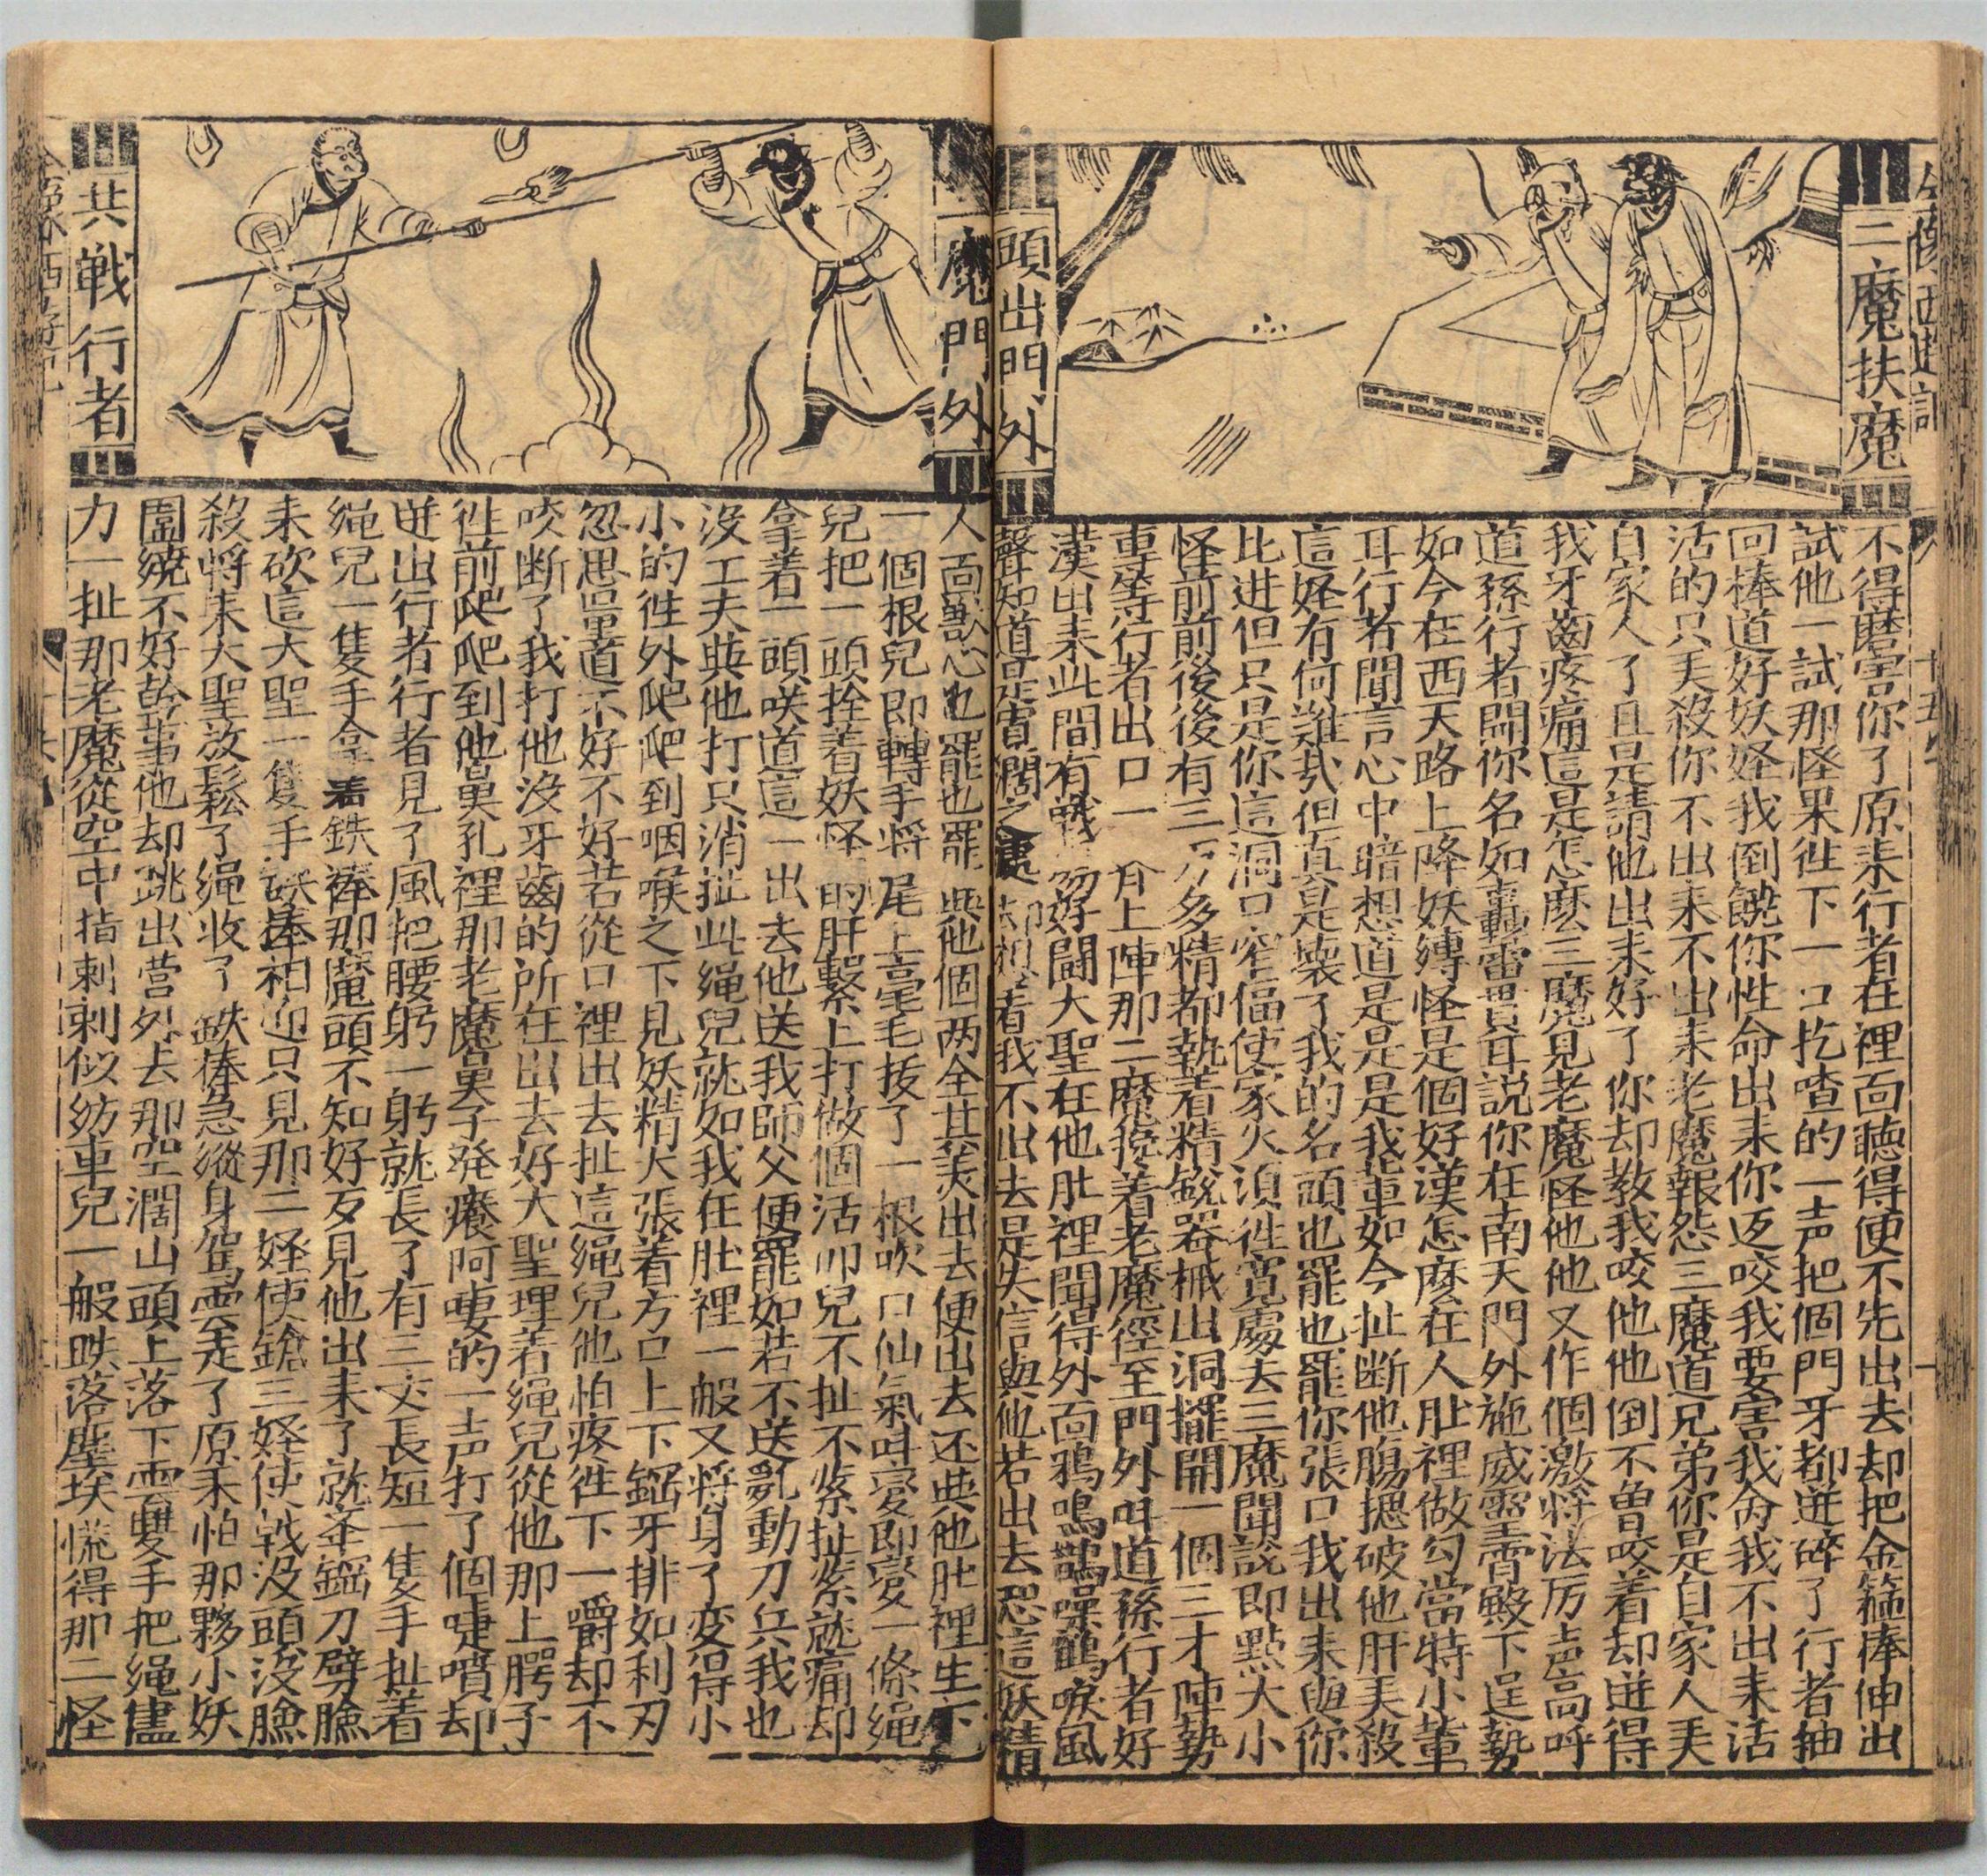 二魔扶魔
頭出門外
不得磨害你了原來行者在裡面聽得便不先出去却把金箍棒伸出
試他一試那怪果徃下一口扢喳的一声把個門牙都迸碎了行者抽
回棒道好妖怪我倒饒你性命出來你返咬我要害我命我不出來活
活的只弄殺你不出來不出來老魔報怨三魔道兄弟你是自家人弄
自家人了且是請他出來好了你却教我咬他他倒不曾咬着却迸得
我牙齒疼痛這是怎麽三魔見老魔怪他他又作個激將法厉声高呼
道孫行者聞你名如轟雷貫耳説你在南天門外施威霊霄殿下逞勢
如今在西天路上降妖縛怪是個好漢怎麽在人肚裡做勾當特小輩
耳行者聞言心中暗想道是是是我輩如今扯断他腸揌破他肝弄殺
這妖有何難㢤但真是壞了我的名頭也罷也罷你張口我出來與你
比进但只是你這洞口窄偪使家火須徃寛處去三魔聞說即點大小
怪前前後後有三万多精都執着精鋭器械出洞擺開一個三才陣勢
專等行者出口一 上陣那二魔攙着老魔徑至門外呌道孫行者好
漢出來此間有戦 好闘大聖在他肚裡聞得外面鴉鳴鵲噪鶴唳風
聲知道是寬濶之處 着我不出去是失信與他若出去恐這妖精
二魔門外
共戰行者
人面獸心也罷也罷與他個两全其美出去便出去还與他肚裡生下
一個根兒即轉手將尾上毫毛拔了一根吹口仙氣呌变即变一條绳
兒把一頭拴着妖怪的肝繫上打做個活叩兒不扯不緊扯緊就痛却
拿着一頭咲道這一出去他送我師父便罷如若不送乱動刀兵我也
没工夫與他打只消扯此绳兒就如我在肚裡一般又將身了变得小
小的徃外爬爬到咽喉之下見妖精大張着方口上下鋼牙排如利刃
忽思量道不好不好若從口裡出去扯這绳兒他怕疼徃下一嚼却不
咬断了我打他没牙齒的所在出去好大聖理若绳兒從他那上腭子
徃前爬爬到他鼻孔裡那老魔鼻子発癢阿嚏的一声打了個嚏噴却
迸出行者行者見了風把腰躬一躬就長了有三丈長短一隻手扯着
绳兒一隻手拿着鉄棒那魔頭不知好歹見他出來了就奎鋼刀劈臉
來砍這大聖一隻手 棒相迎只見那二妖使鎗三妖使戟没頭没臉
殺將來大聖放鬆了绳收了鉄棒急縱身駕雲走了原來怕那夥小妖
圍繞不好幹事他却跳出营外去那空濶山頭上落下雲雙手把绳儘
力一扯那老魔從空中 剌剌似紡車兒一般跌落塵埃慌得那二怪